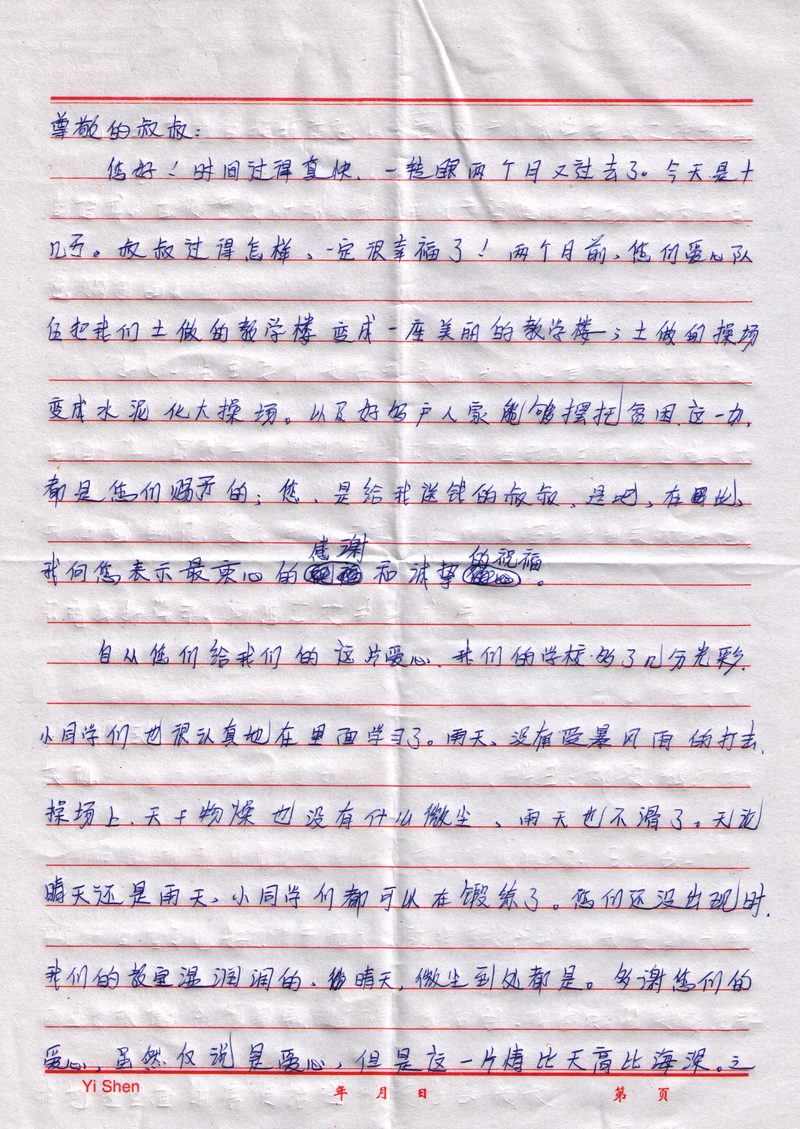 尊敬的叔叔：
您好！时间过得真快、一转眼两个月又过去了。今天是十
几号。叔叔过得怎样、一定很幸福了！两个月前、您们爱心队
伍把我们土做的教学楼变成一座美丽的教学楼；土做的操场
变成水泥化大操场。以及好好户人家能够摆托贫困.这一切,
都是您们赐予的；您、是给我送钱的叔叔、在此、
感谢 的祝福
我向您表示最衷心的 和诚挚 。
自从您们给我们的这片爱心.我们的学校多了几分光彩.
小同学们也很认真地在里面学习了。雨天、没有受暴风雨的打击.
操场上、天干物燥也没有什么微尘、雨天也不滑了。无论
晴天还是雨天、小同学们都可以在锻练了。您们还没出现时.
我们的教室湿润润的、晴天,微尘到处都是。多谢您们的
爱心,虽然仅说是爱心,但是这一片情比天高比海深。之
Yi Shen 年 月 日 第 页